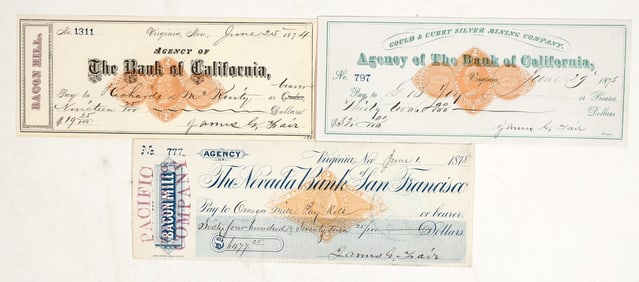 BACON MILL.
No. 1311
Virginia, Nev, June 25 1874
AGENCY OF
The Bank of California,
Pay to Richard McKenty or bearer
Nineteen 25/100 Dollars
$19 25/100
James G. Fair
GOULD & CURRY SILVER MINING COMPANY.
Agency of The Bank of California,
No. 797
Virginia, 1875
Pay to or Bearer,
Thirty two 00/100 Dollars
$32 00/100
James G. Fair
No. 777.
AGENCY
Virginia, Nev. June 1 1878
The Nevada Bank of San Francisco
PACIFIC
BACON MILL
COMPANY
Pay to Omega Mill Pay Roll or bearer
Sixty four hundred & Seventy seven 25/100 Dollars
$6477 25
James G. Fair